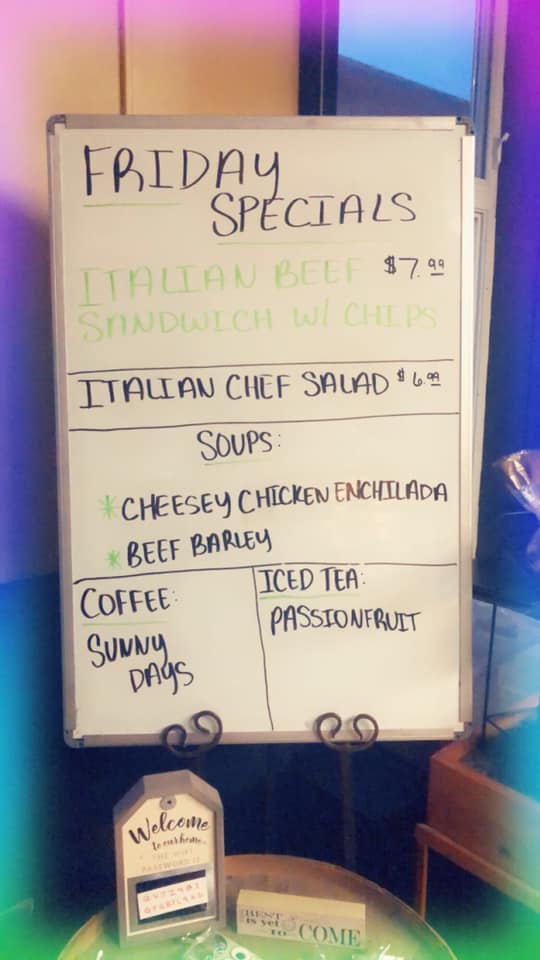 FRIDAY
SPECIALS
ITALIAN BEEF $7.99
SANDWICH W/ CHIPS
ITALIAN CHEF SALAD $6.99
SOUPS:
*CHEESEY CHICKEN ENCHILADA
*BEEF BARLEY
COFFEE:
SUNNY
DAYS
ICED TEA:
PASSIONFRUIT
Welcome
to our home
THE WIFI
PASSWORD IS
BEST
is yet
TO COME